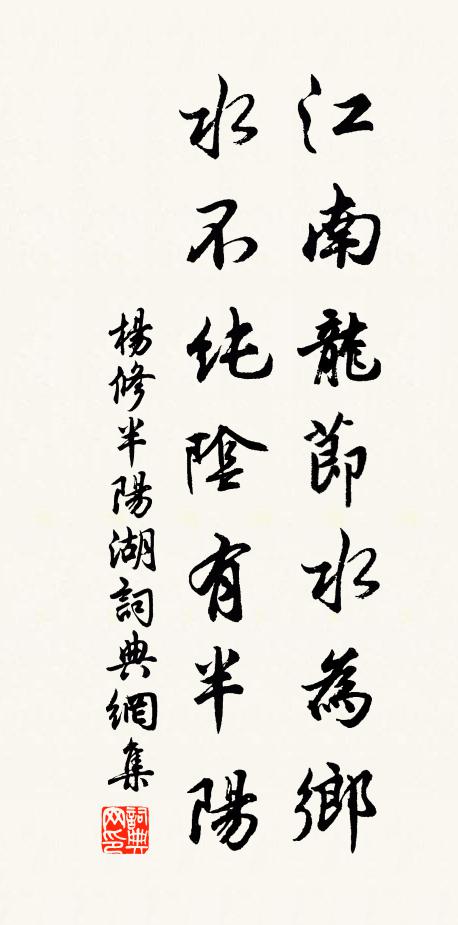 江南龍節水為鄉
水不純陰有半陽
楊修半陽湖詞典網集
詞典网印